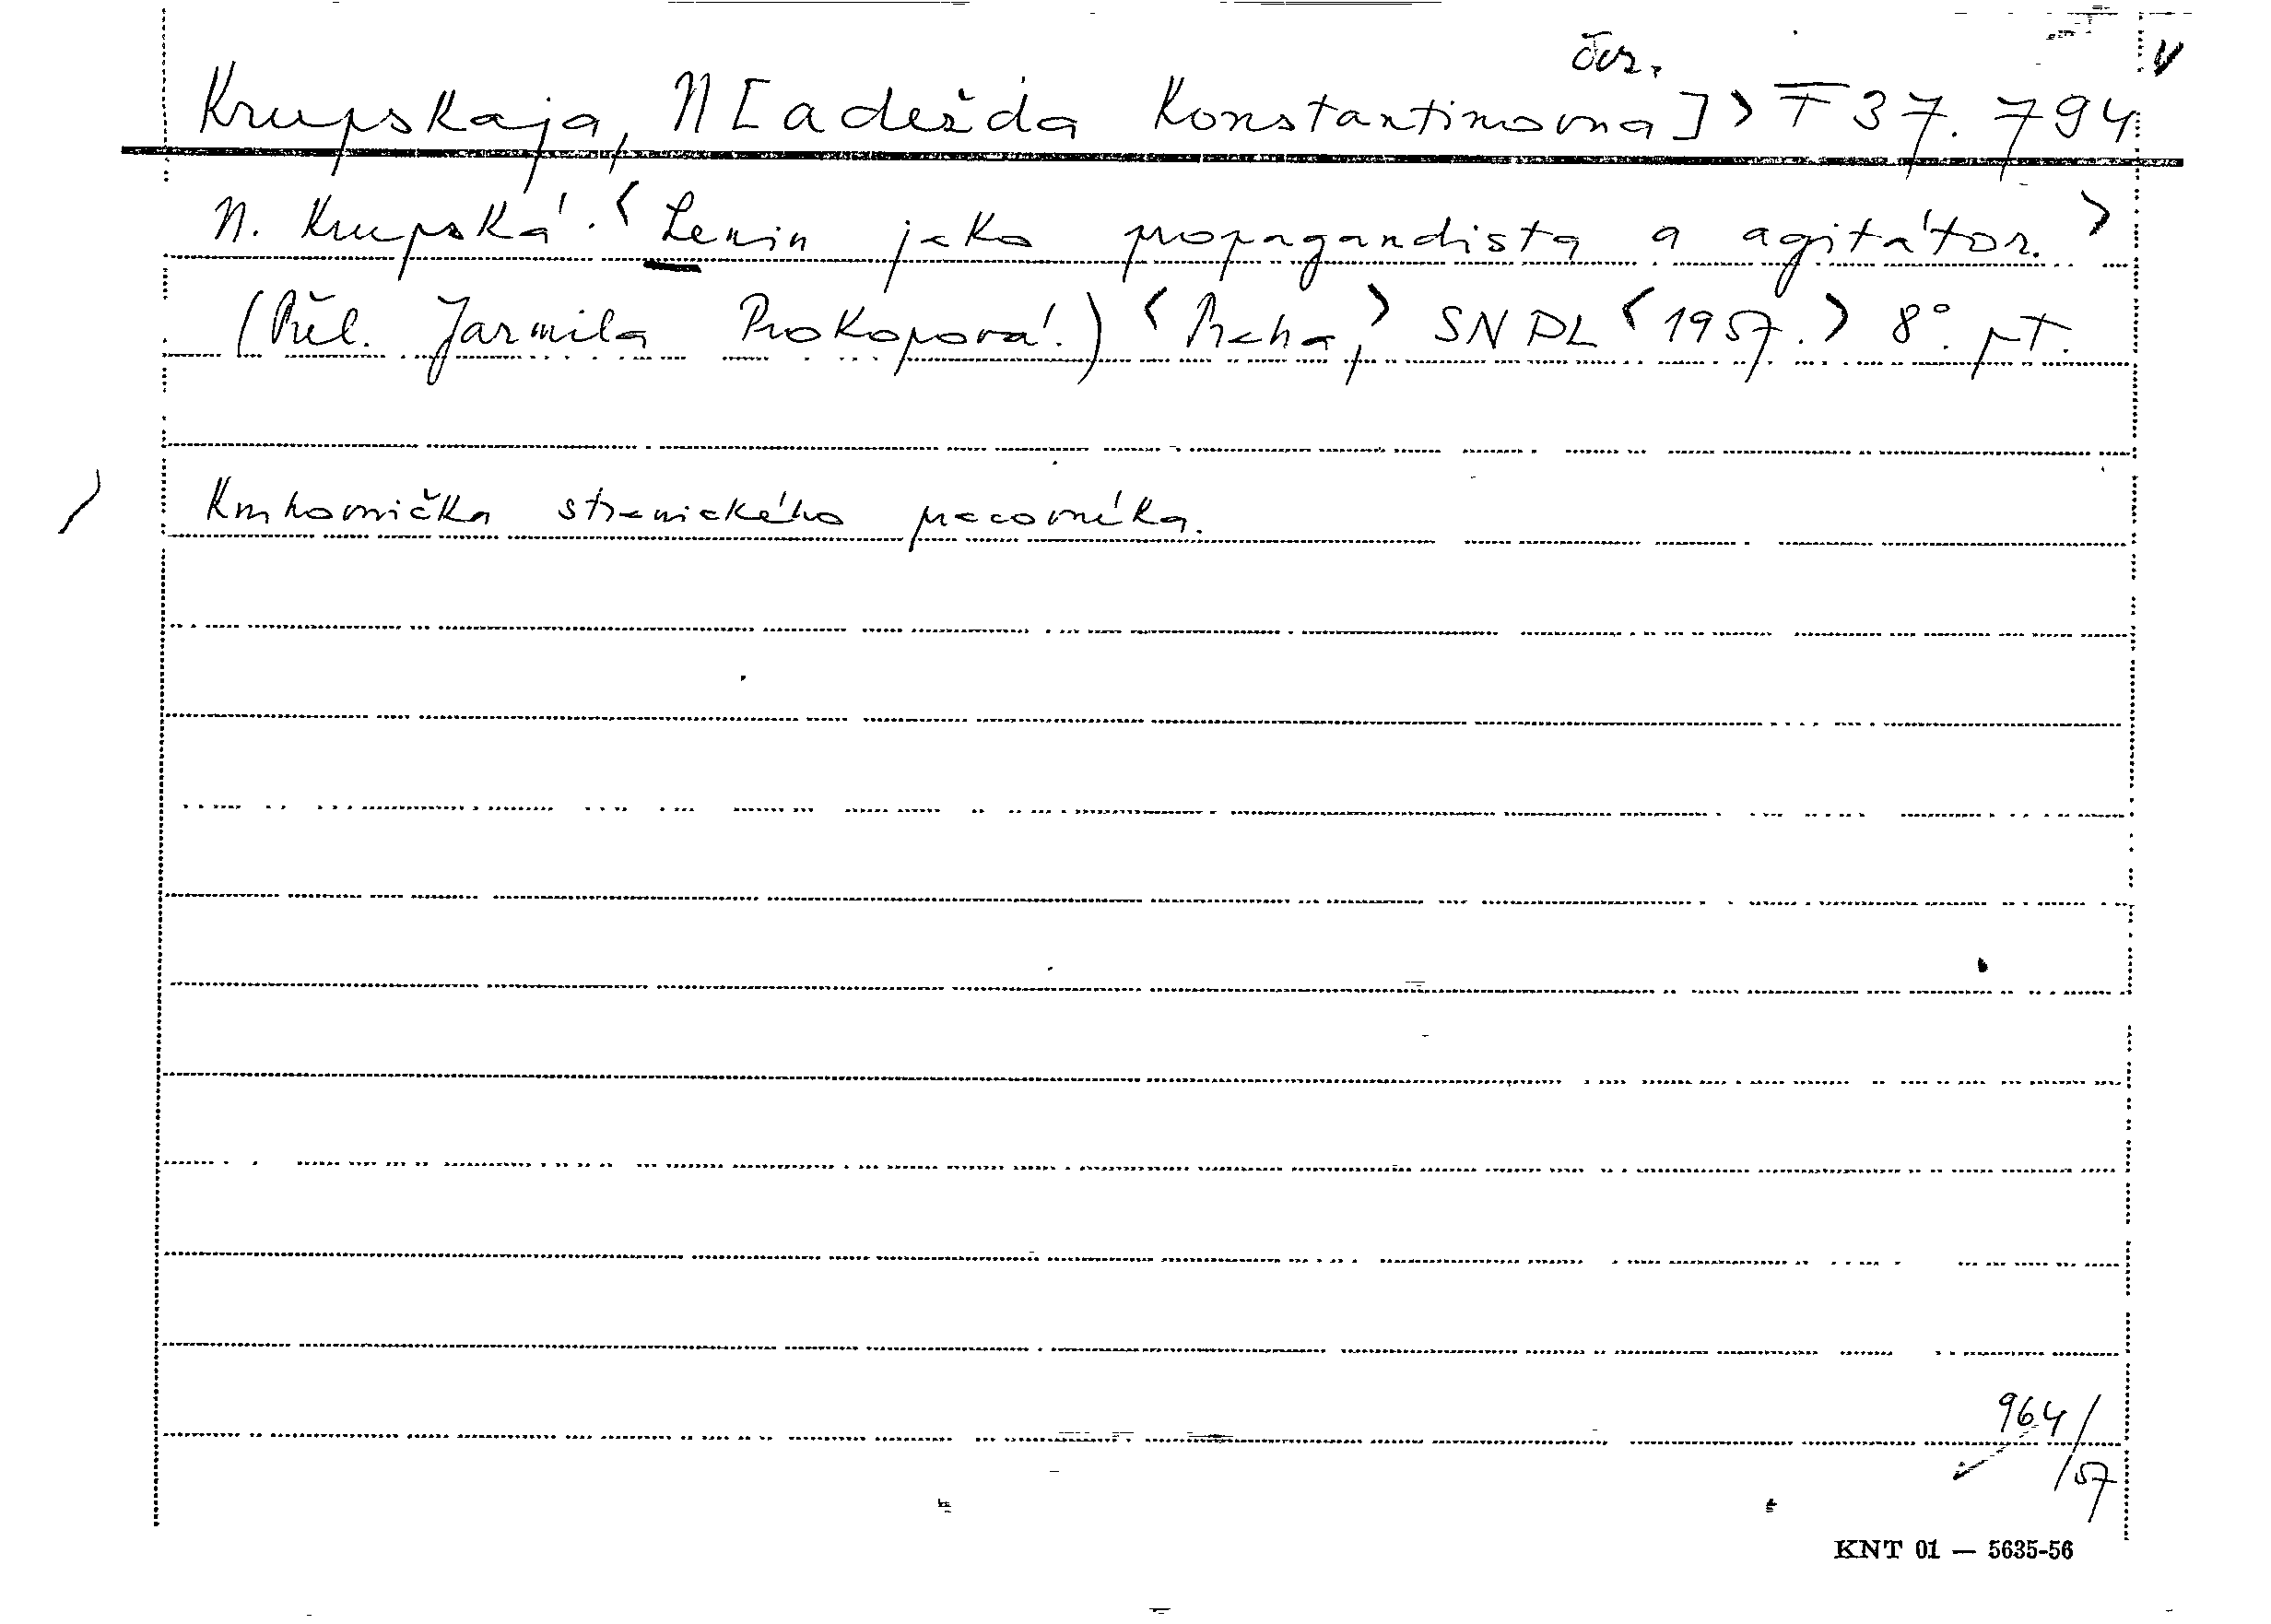 čer.
Krupskaja, N[adežda Konstantinovna] > T 37.794
N. Krupská. <Lenin jako propagandista a agitátor.>
(Přel. Jarmila Prokopová.) <Praha,> SNPL <1957.> 8°. pt.
Knihovnička stranického pracovníka.
964/
/57
KNT 01 — 5635-56